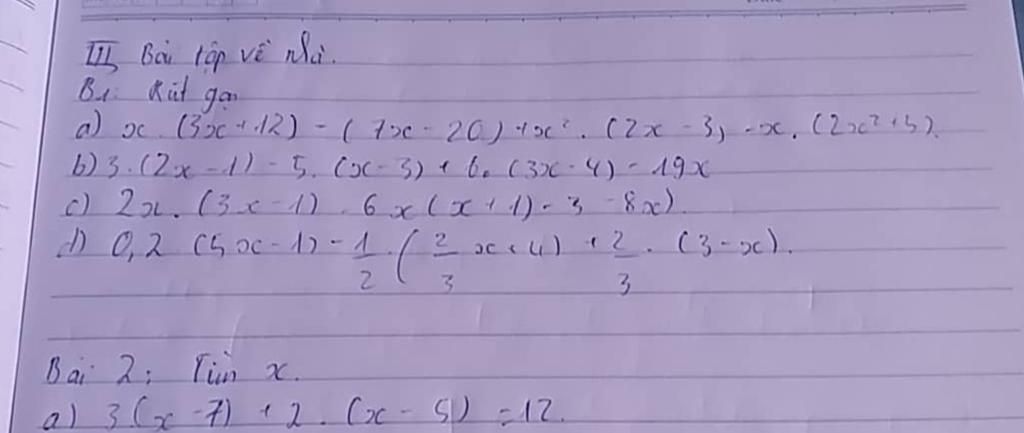 III, Bài tập về nhà.
B1: Rút gọn
a) x. (3x + 12) - (7x - 20) + x². (2x - 3) - x. (2x² + 5).
b) 3. (2x - 1) - 5. (x - 3) + 6. (3x - 4) - 19x
c) 2x. (3x - 1) - 6x (x + 1) - 3 - 8x)
d) 0,2 (5x - 1) - 1/2 . (2/3 x + 4) + 2/3 . (3 - x).
Bài 2: Tìm x.
a) 3 (x - 7) + 2. (x - 5) = 12.